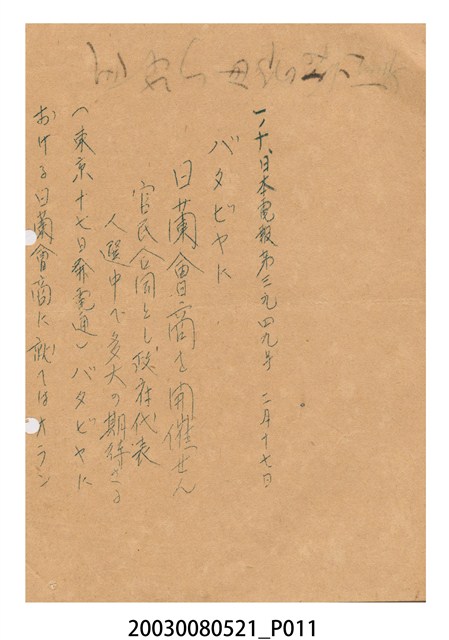 一ノ十、日本電報第三九四九号 二月十七日
バタビヤに
日蘭會商を開催せん
官民合同とし政府代表
人選中で多大の期待さる
(東京十七日発電通)バタビヤに
おける日蘭會商に就てはオラン
20030080521_P011